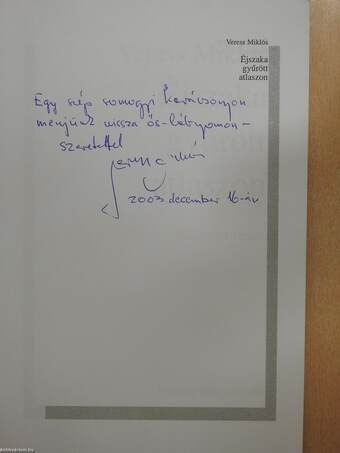 Veress Miklós
Éjszaka
gyűrött
atlaszon
Egy szép somogyi karácsonyon
menjünk vissza ős-lábnyomon –
szeretettel
2003 december 16-án